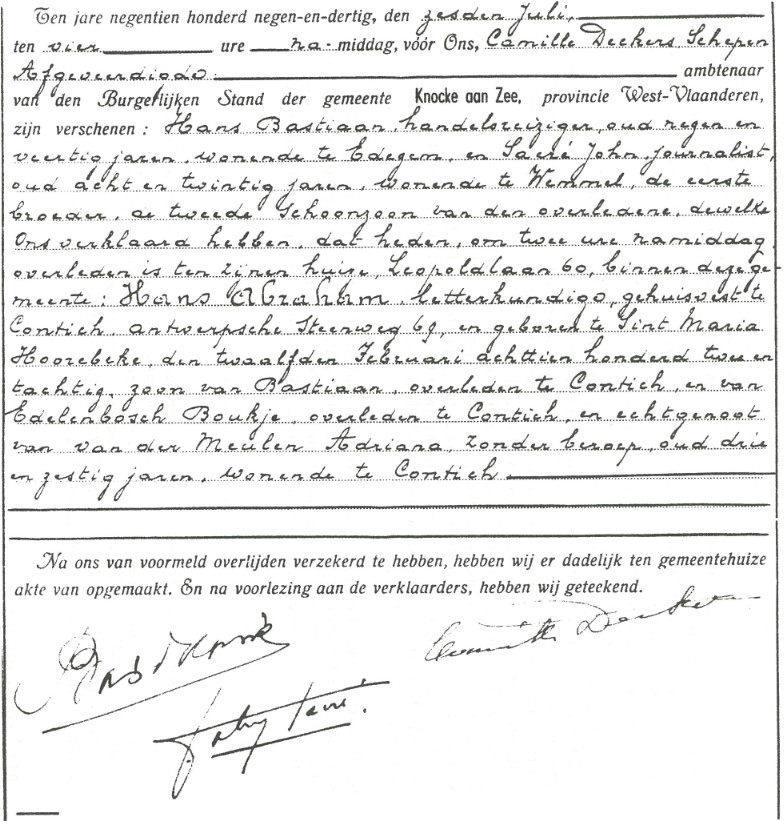 Ten jare negentien honderd negen-en-dertig, den zesden Juli,
ten vier ure na-middag, vóór Ons, Camille Deckers Schepen
Afgeveerdigde ambtenaar
van den Burgerlijken Stand der gemeente Knocke aan Zee, provincie West-Vlaanderen,
zijn verschenen : Hans Bastiaan, handelsreiziger, oud negen en
veertig jaren, wonende te Edegem, en Sacré John, journalist,
oud acht en twintig jaren, wonende te Wemmel, de eerste
broeder, de tweede schoonzoon van den overledene, dewelke
Ons verklaard hebben, dat heden, om twee ure namiddag
overleden is ten zijnen huize, Leopoldlaan 60, binnen deze ge-
meente : Hans Abraham, letterkundige, gehuisvest te
Contich, Antwerpsche Steenweg 69, en geboren te Sint Maria
Hoorebeke, den twaalfden Februari achttien honderd twee en
tachtig, zoon van Bastiaan, overleden te Contich, en van
Edelenbosch Boukje, overleden te Contich, en echtgenoot
van van der Meulen Adriana, zonder beroep, oud drie
en zestig jaren, wonende te Contich
Na ons van voormeld overlijden verzekerd te hebben, hebben wij er dadelijk ten gemeentehuize
akte van opgemaakt. En na voorlezing aan de verklaarders, hebben wij geteekend.